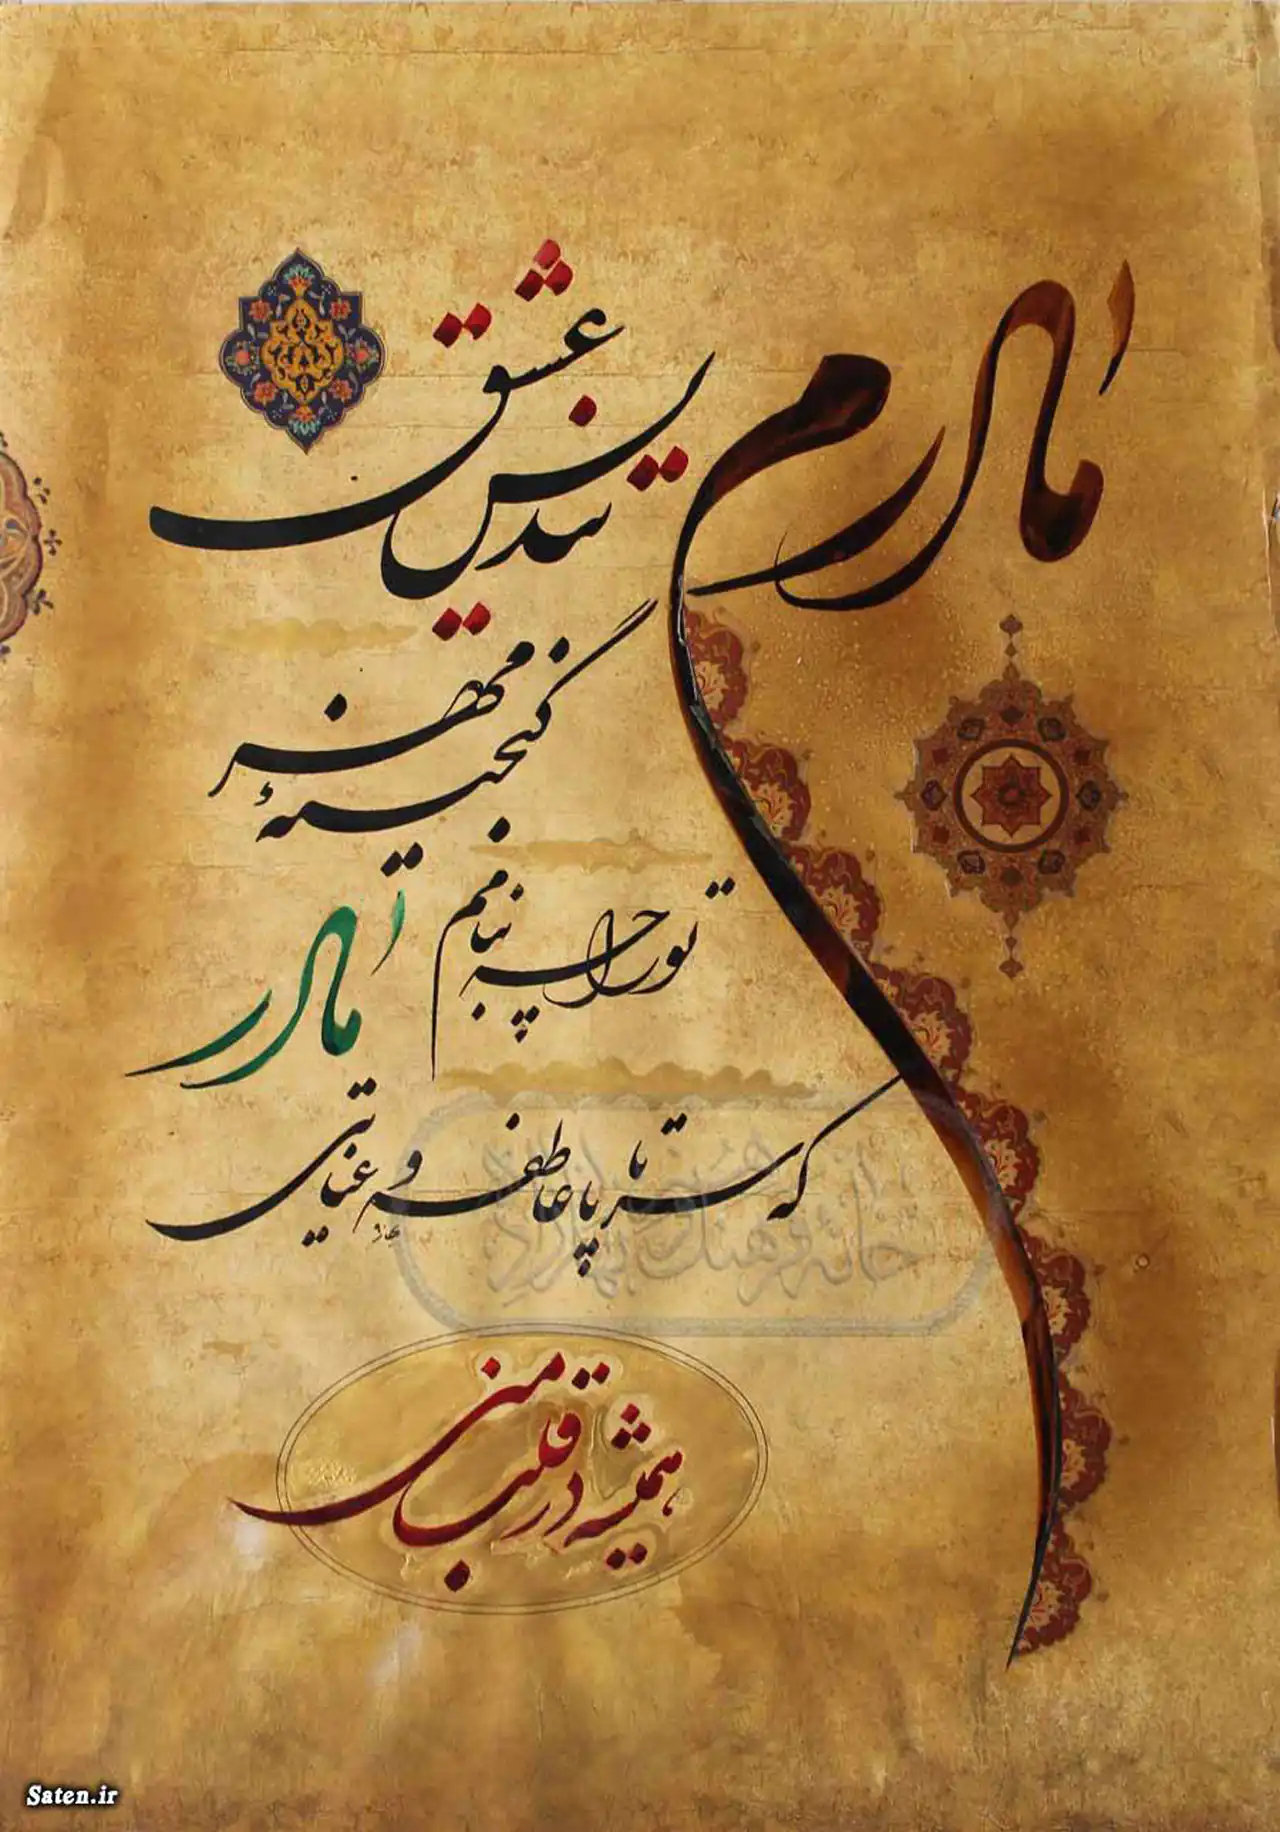 مادرم
تندیس عشق
گنجینهٔ مهر
تو را چه بنامم
مادر
که سر تا پا عاطفه و عنایتی
همیشه در قلب منی
خانه فرهنگ و هنر بهزاد
Saten.ir